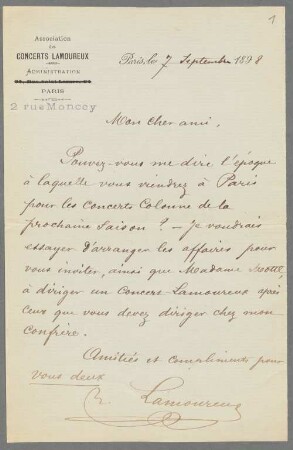 1
Association
des
CONCERTS LAMOUREUX
ADMINISTRATION
PARIS
2 rue Moncey
Paris, le 7 Septembre 1898
Mon cher ami,
Pouvez-vous me dire l'époque
à laquelle vous viendrez à Paris
pour les Concerts Colonne de la
prochaine saison ? — Je voudrais
essayer d'arranger les affaires pour
vous inviter, ainsi que Madame
à diriger un Concert Lamoureux après
ceux que vous devez diriger chez mon
confrère.
Amitiés et compliments pour
vous deux
Lamoureux